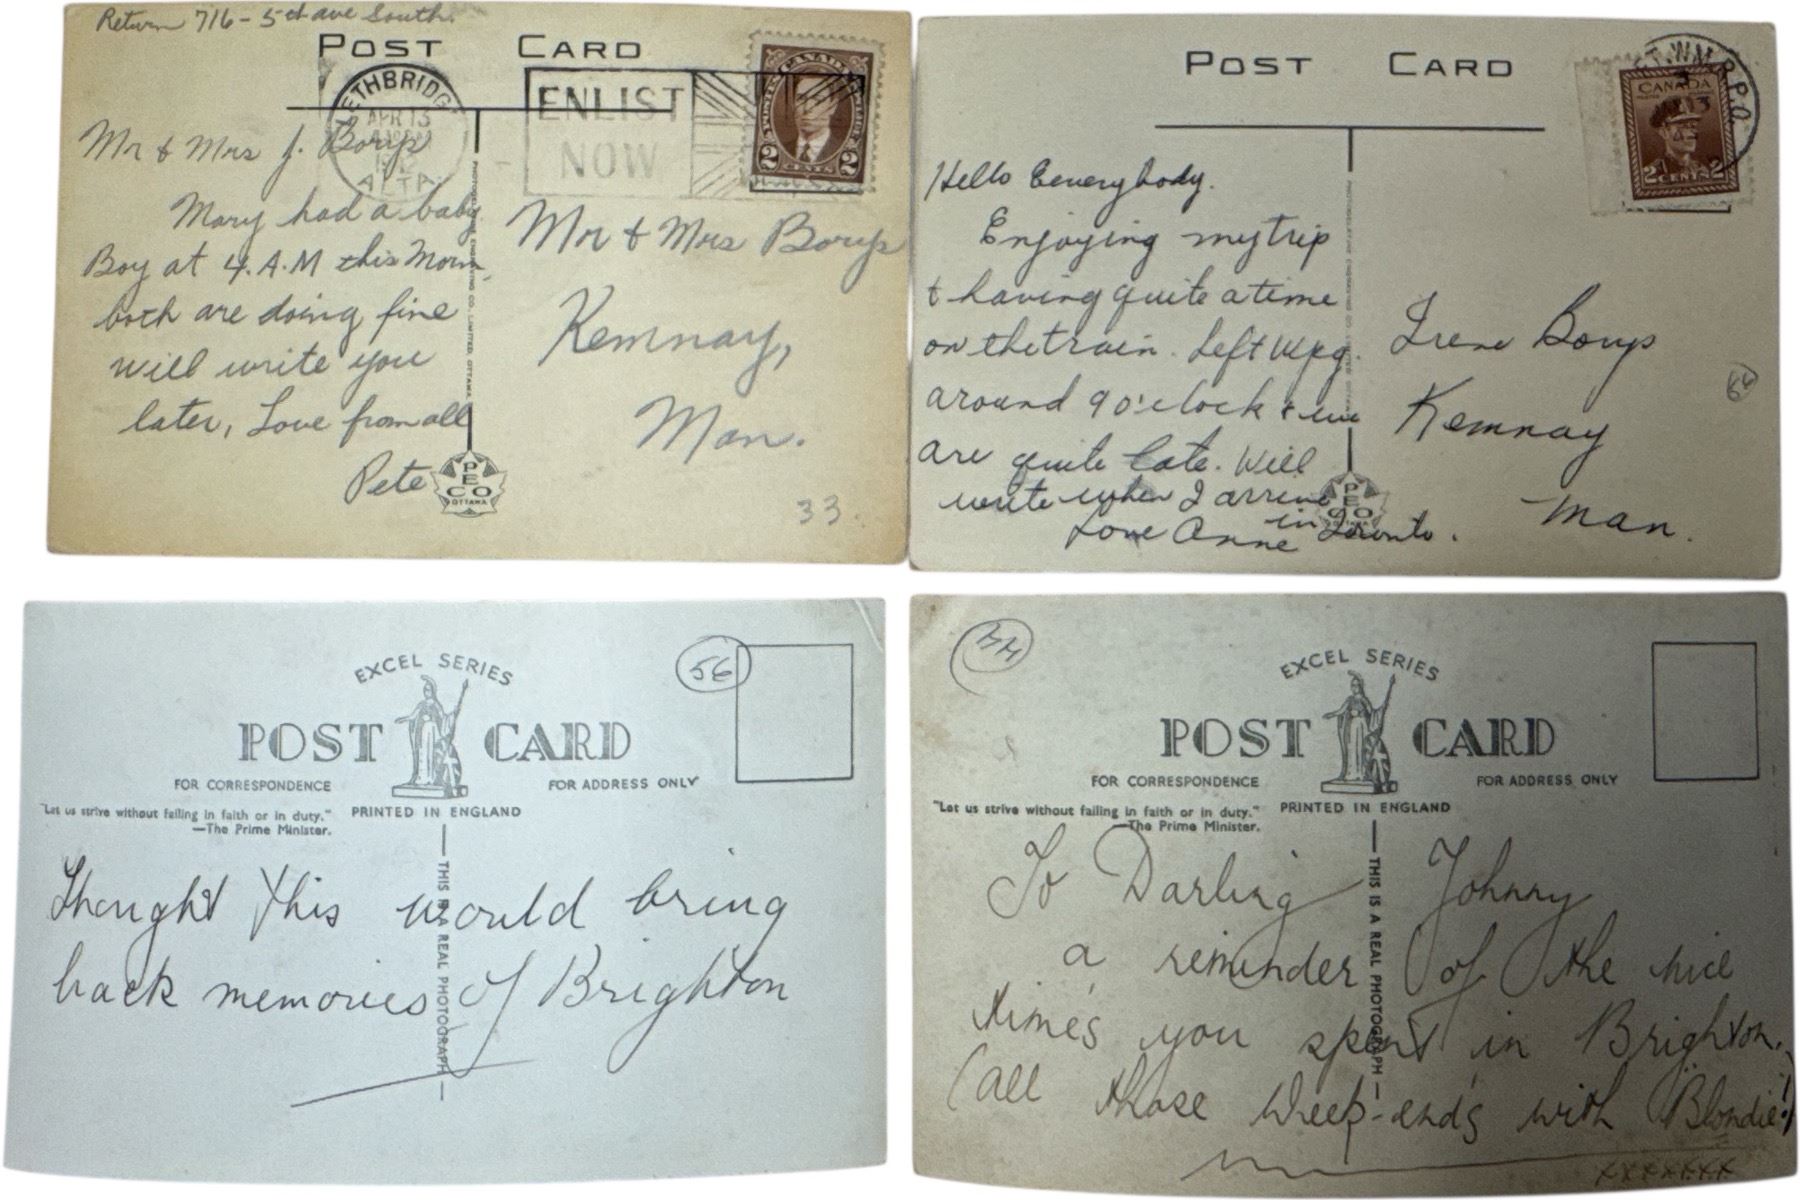 Return 716 - 5th ave South.
POST CARD
LETHBRIDGE
APR 13
ALTA.
ENLIST
NOW
CANADA
POSTES POSTAGE
2 CENTS 2
Mr & Mrs J. Borys
Mary had a baby
Boy at 4.A.M this Morn,
both are doing fine
will write you
later, Love from all
Pete
Mr & Mrs Borys
Kemnay,
Man.
PHOTOGELATINE ENGRAVING CO. LIMITED, OTTAWA
PECO
OTTAWA
33
POST CARD
FT. WM. R.P.O.
CANADA
2 CENTS 2
Hello Eeverybody.
Enjoying my trip
& having quite a time
on the train. Left Wpg.
around 9 o'clock & we
are quite late. Will
write when I arrive
in Toronto.
Love Anne
Irene Borys
Kemnay
Man.
PHOTOGELATINE ENGRAVING CO.
PECO
OTTAWA
EXCEL SERIES
56
POST CARD
FOR CORRESPONDENCE
FOR ADDRESS ONLY
"Let us strive without failing in faith or in duty."
—The Prime Minister.
PRINTED IN ENGLAND
THIS IS A REAL PHOTOGRAPH
Thought this would bring
back memories of Brighton
EXCEL SERIES
POST CARD
FOR CORRESPONDENCE
FOR ADDRESS ONLY
"Let us strive without failing in faith or in duty."
—The Prime Minister.
PRINTED IN ENGLAND
THIS IS A REAL PHOTOGRAPH
To Darling Johnny
a reminder of the nice
time's you spent in Brighton.
(all those Week-end's with "Blondie"!)
xxxxxxx